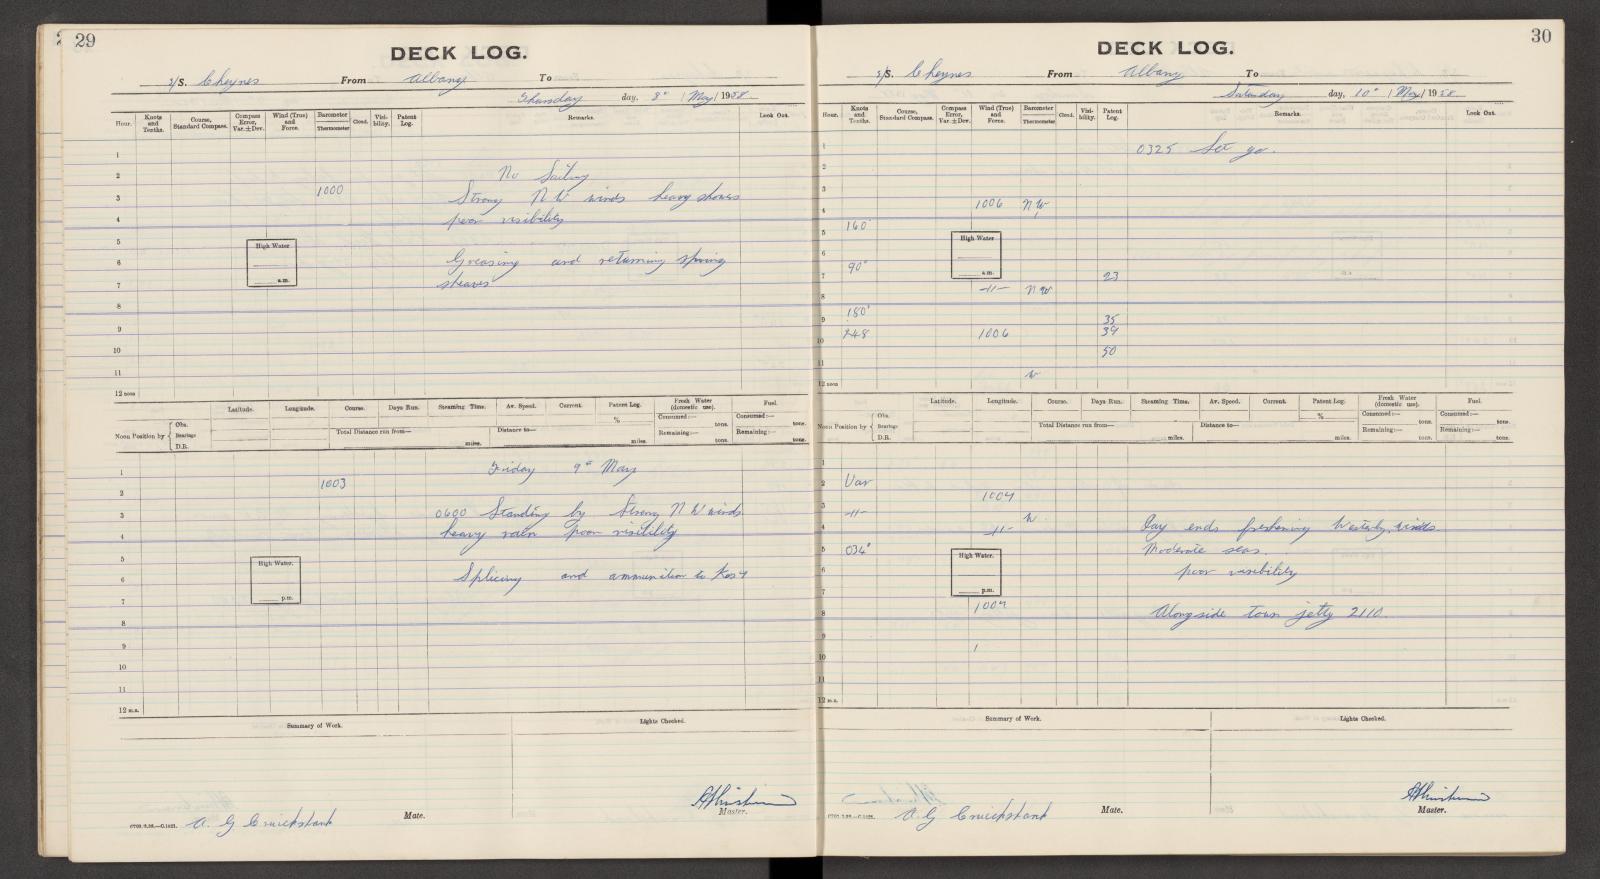 29
DECK LOG.
S/S. Cheynes From Albany To
Thursday day, 8th / May / 1958
Hour. Knots and Tenths. Course, Standard Compass. Compass Error, Var. ± Dev. Wind (True) and Force. Barometer Thermometer Cloud. Visibility. Patent Log. Remarks. Look Out.
1
2 No Sailing
3 1000 Strong N W winds heavy showers
4 poor visibility
5
High Water
6 Greasing and returning spring
7 a.m. sheaves
8
9
10
11
12 noon
Latitude. Longitude. Course. Days Run. Steaming Time. Av. Speed. Current. Patent Log. Fresh Water (domestic use). Fuel.
Noon Position by Obs. Bearings D.R. Total Distance run from— miles. Distance to— miles. % Consumed:— tons. Remaining:— tons. Consumed:— tons. Remaining:— tons.
1 Friday 9th May
2 1003
3 0600 Standing by Strong N W winds
4 heavy rain poor visibility
5
High Water.
6 Splicing and ammunition to Kos 7
7 p.m.
8
9
10
11
12 m.n.
Summary of Work. Lights Checked.
A. G Cruickshank Mate. Master.
30
DECK LOG.
S/S. Cheynes From Albany To
Saturday day, 10th / May / 1958
Hour. Knots and Tenths. Course, Standard Compass. Compass Error, Var. ± Dev. Wind (True) and Force. Barometer Thermometer Cloud. Visibility. Patent Log. Remarks. Look Out.
1 0325 Let go.
2
3
4 1006 NW
5 160°
High Water
6
7 90° a.m. 23
8 —11— NW
9 180° 35
10 248 1006 39
50
11 W
12 noon
Latitude. Longitude. Course. Days Run. Steaming Time. Av. Speed. Current. Patent Log. Fresh Water (domestic use). Fuel.
Noon Position by Obs. Bearings D.R. Total Distance run from— miles. Distance to— miles. % Consumed:— tons. Remaining:— tons. Consumed:— tons. Remaining:— tons.
1
2 Var
3 —11— 1004 W
4 —11— Day ends freshening Westerly winds
5 034° Moderate seas.
High Water.
6 poor visibility
7 p.m.
8 1004 Alongside town jetty 2110.
9
10
11
12 m.n.
Summary of Work. Lights Checked.
A. G Cruickshank Mate. Master.